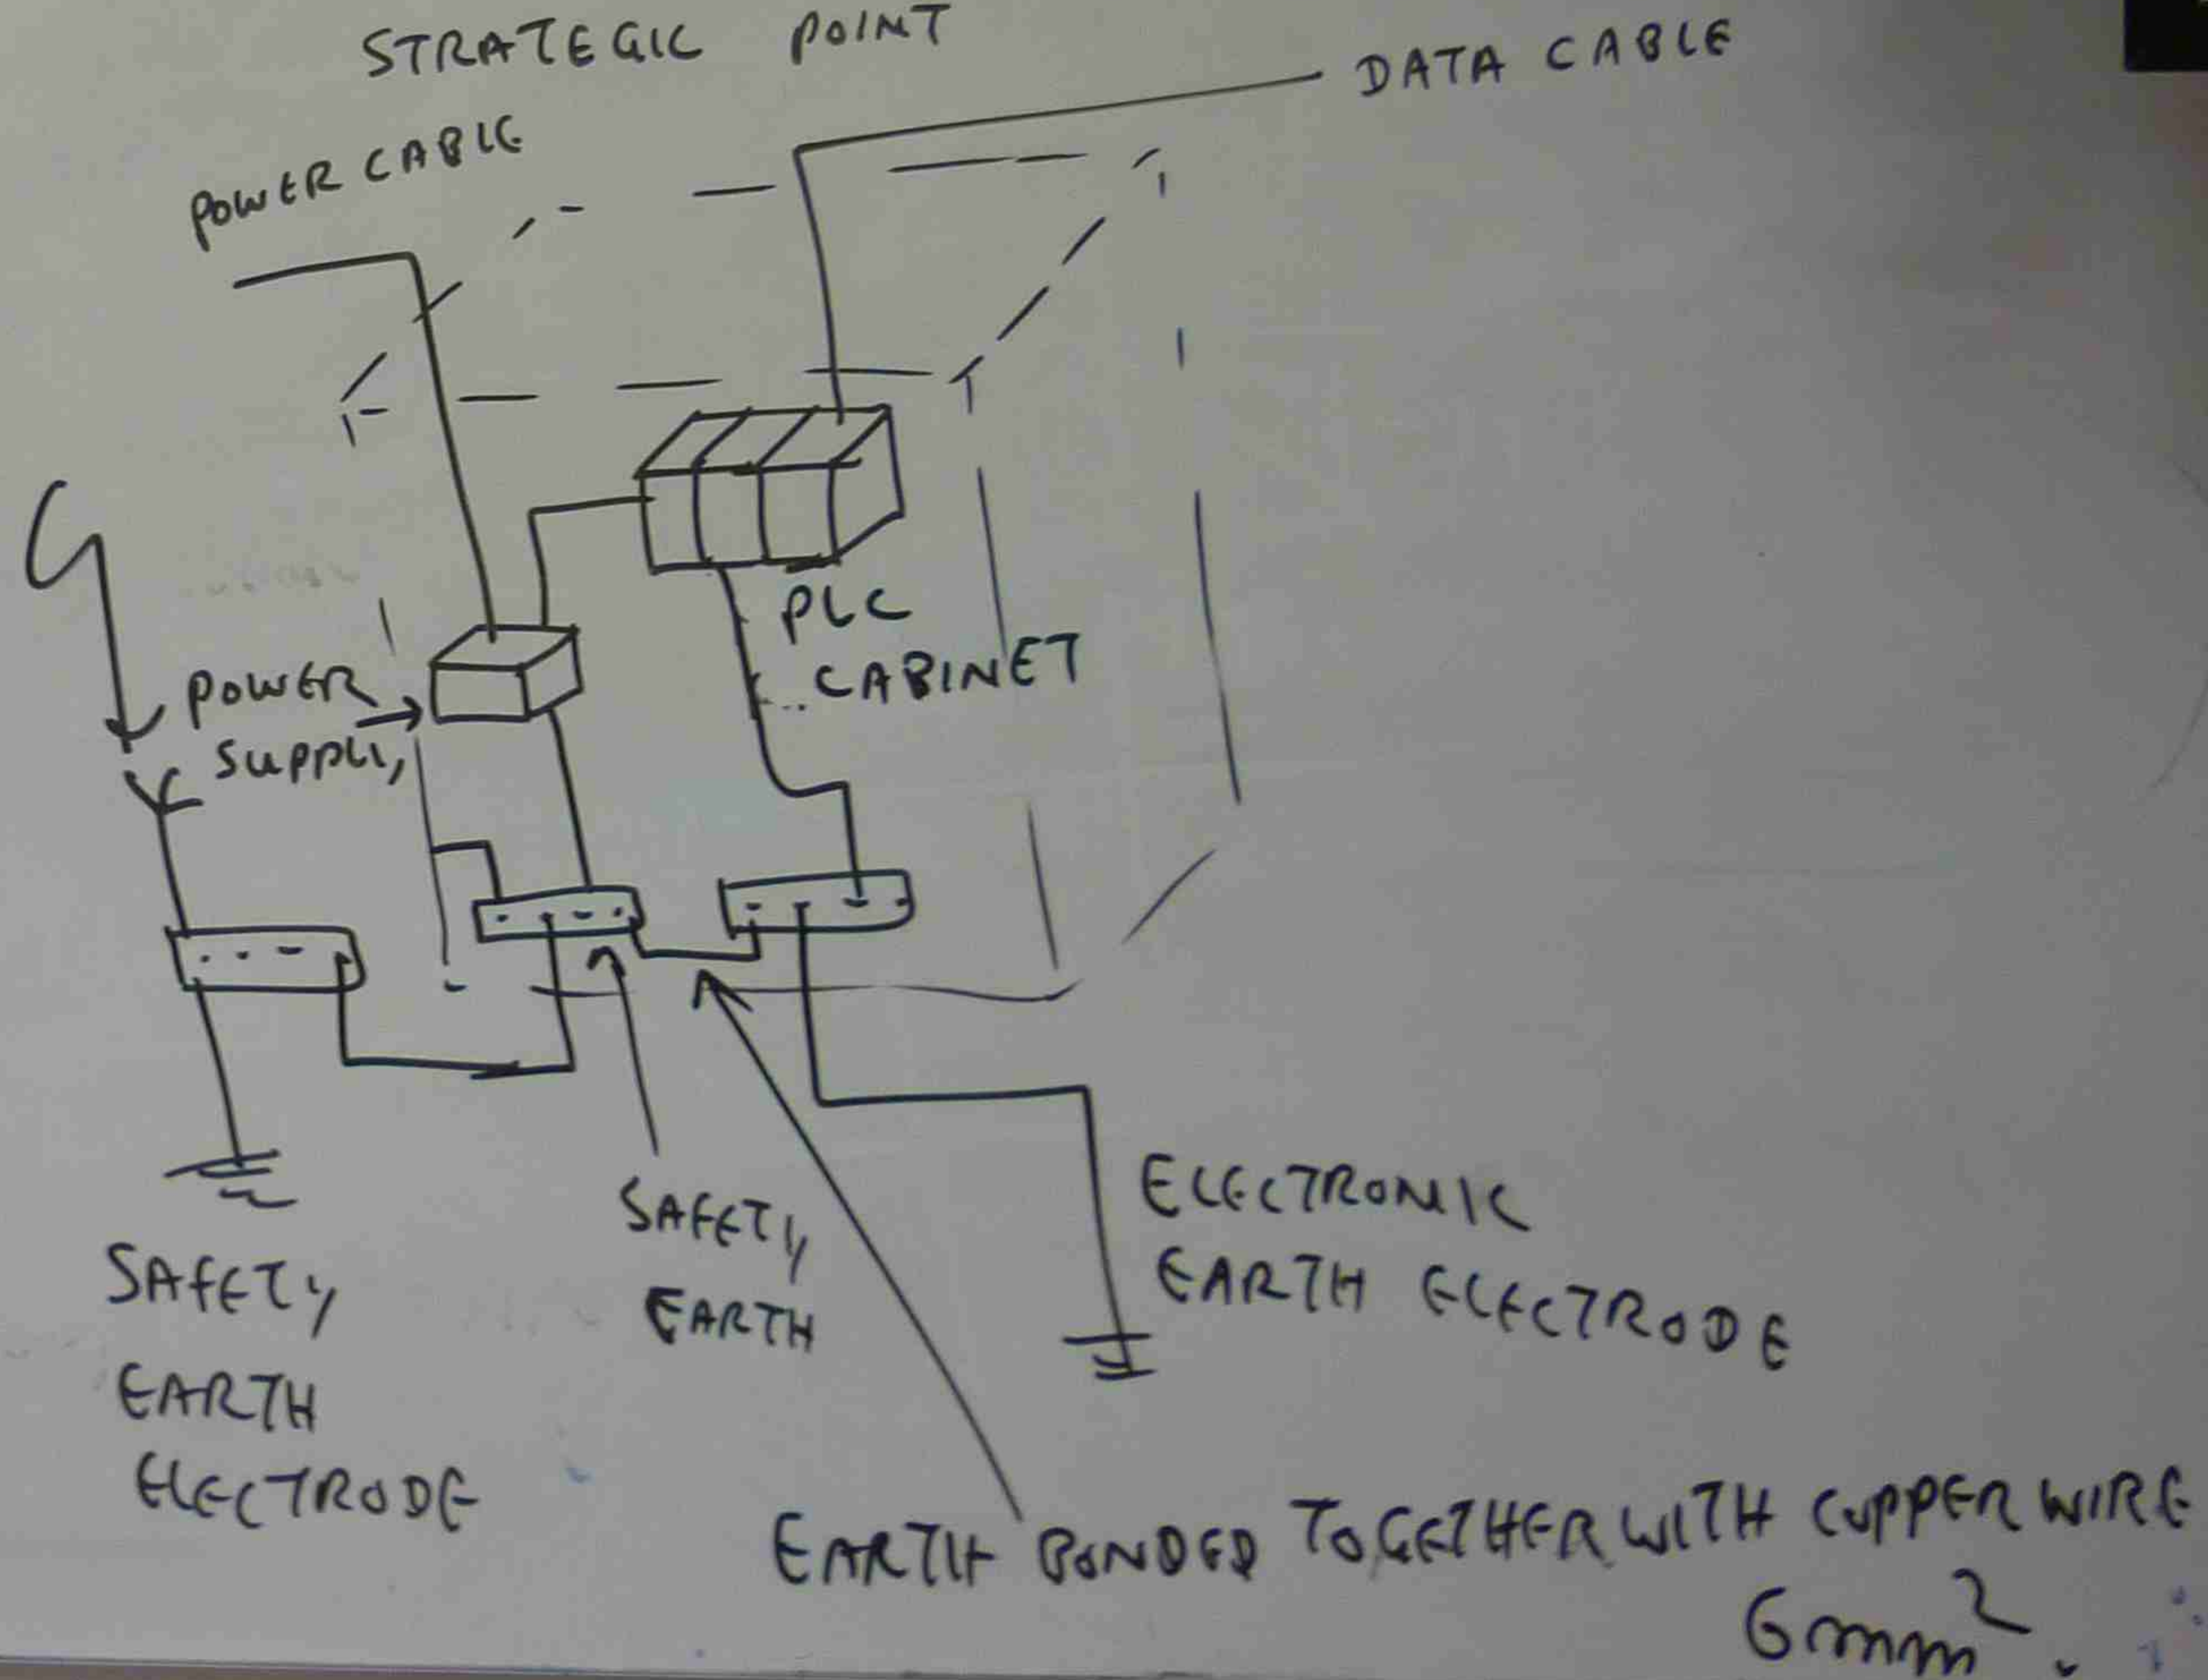 STRATEGIC POINT
DATA CABLE
POWER CABLE
PLC
CABINET
POWER
SUPPLY
SAFETY
EARTH
ELECTRODE
SAFETY
EARTH
ELECTRONIC
EARTH ELECTRODE
EARTH BONDED TOGETHER WITH CUPPER WIRE
6mm².